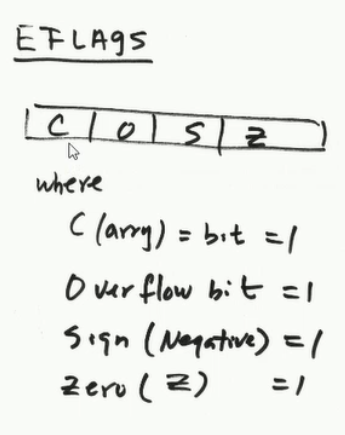 EFLAgs
C | O | S | Z
where
C (arry) = bit = 1
Overflow bit = 1
Sign (Negative) = 1
Zero (Z) = 1